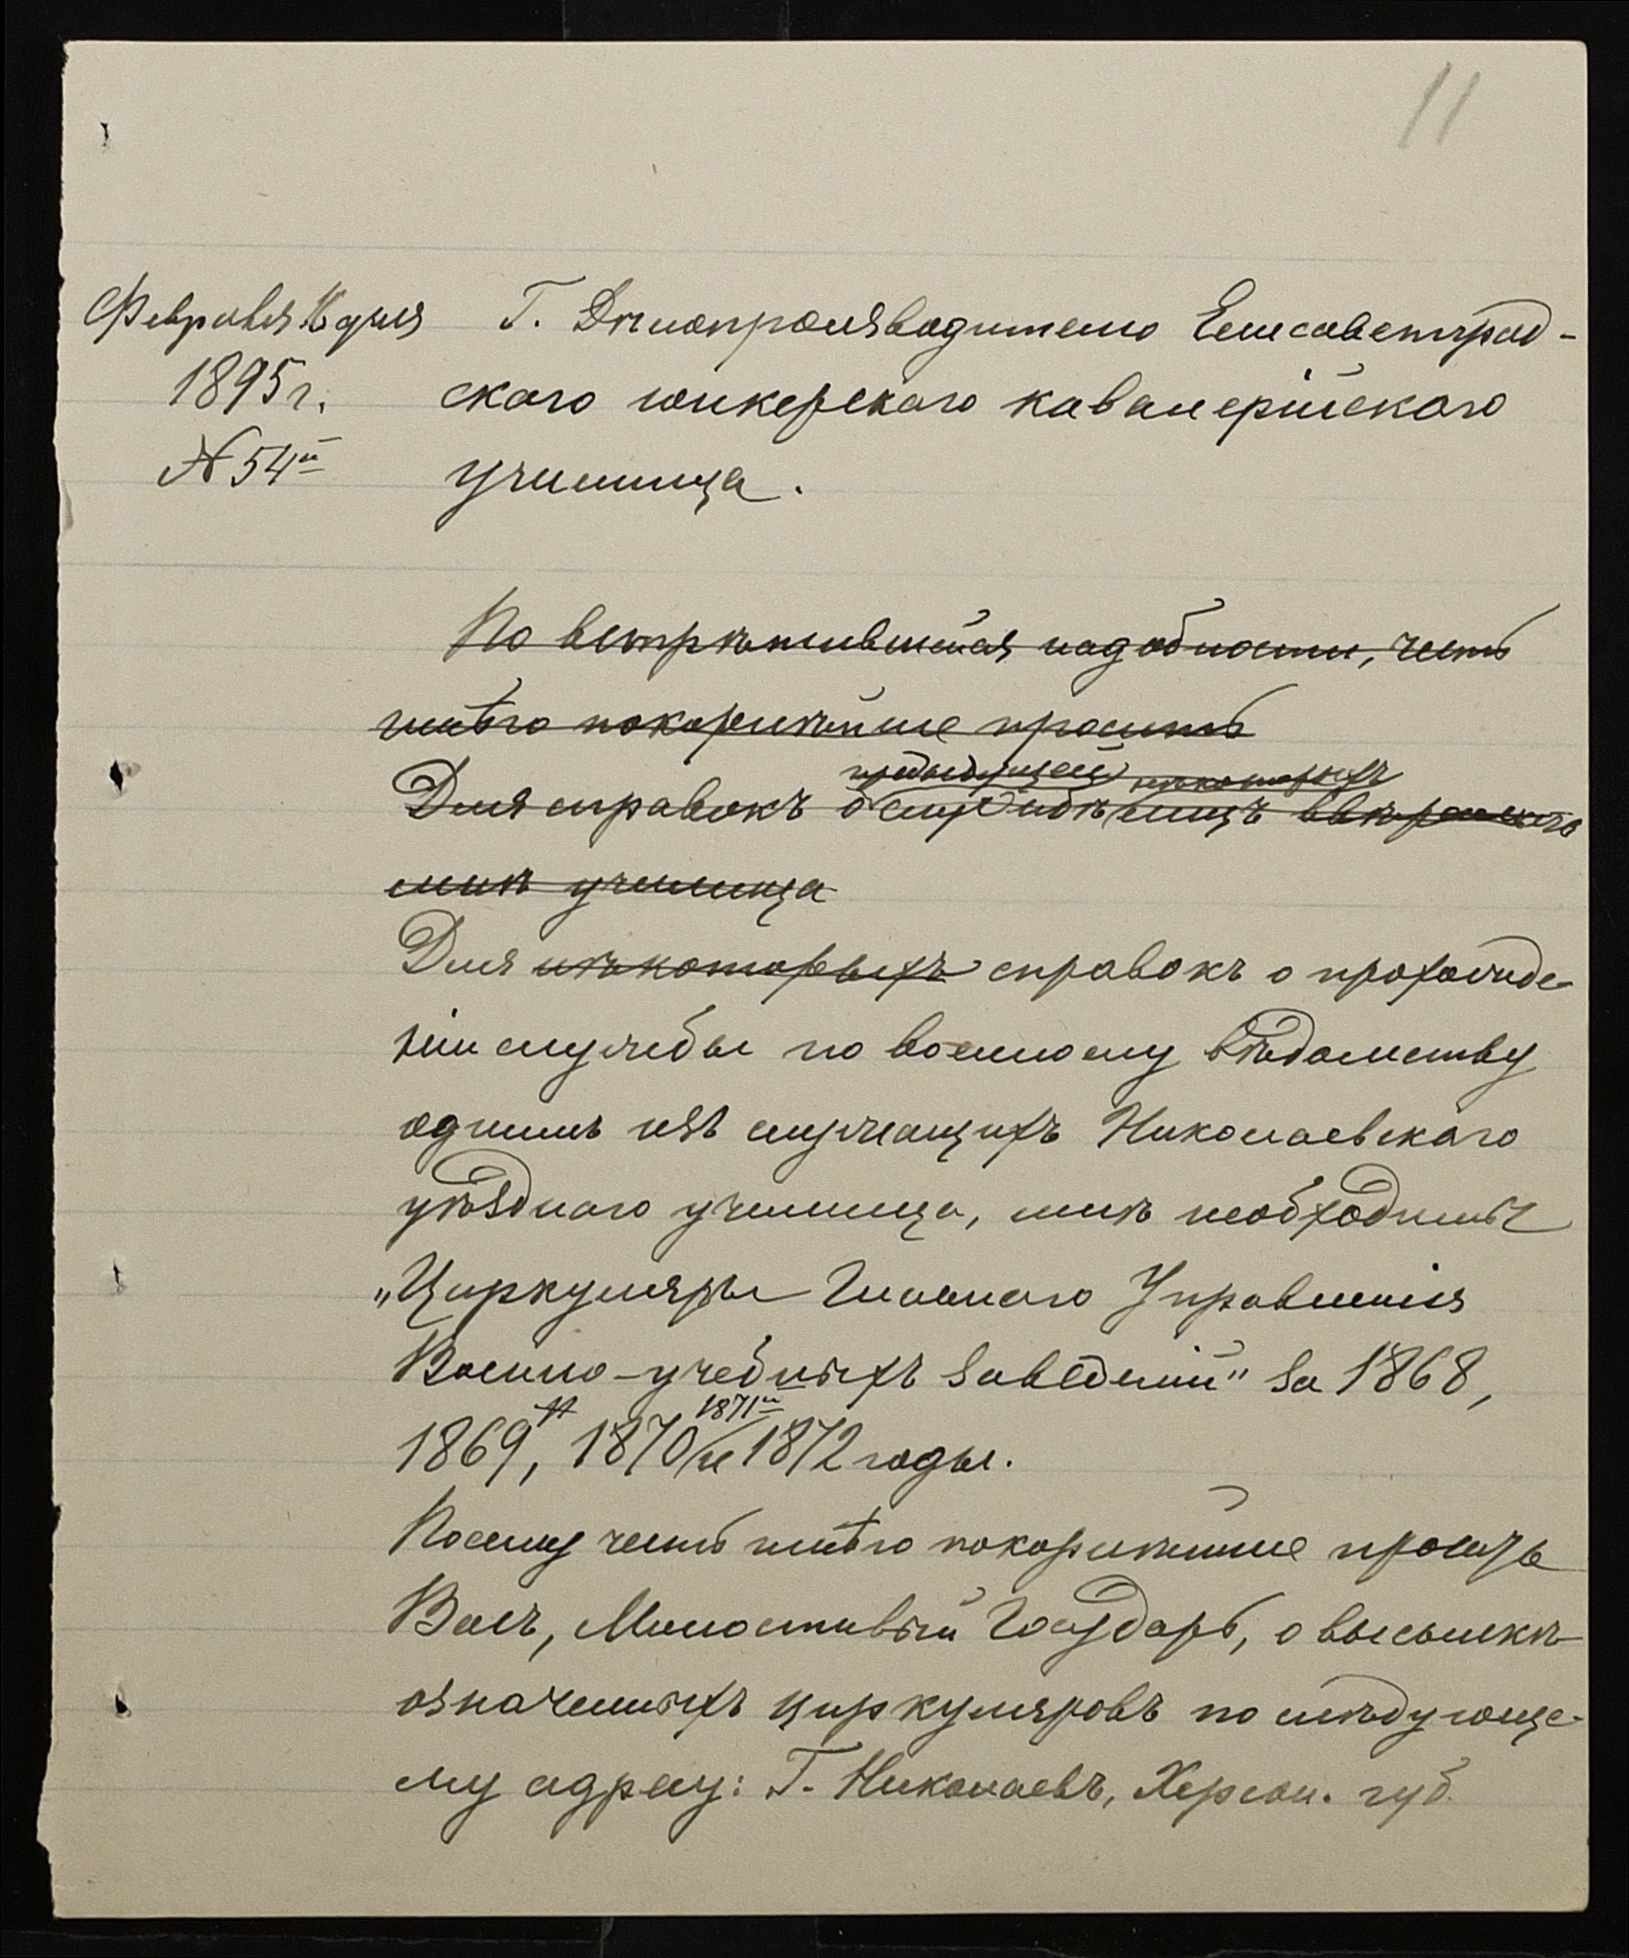 11
Февраля 16 дня
1895 г.
№ 54й
Г. Дѣлопроизводителю Елисаветград-
скаго юнкерскаго кавалерійскаго
училища.
По встрѣтившейся надобности, честь
имѣю покорнѣйше просить
предыдущей нѣкоторыхъ
Для справокъ о службѣ лицъ ввѣреннаго
мнѣ училища
Для нѣкоторыхъ справокъ о прохожде-
ніи службы по военному вѣдомству
однимъ изъ служащихъ Николаевскаго
уѣзднаго училища, мнѣ необходимы
„Циркуляры Главнаго Управленія
Военно-учебныхъ заведеній" за 1868,
1871й
1869, 1870 и 1872 годы.
Посему честь имѣю покорнѣйше просить
Васъ, Милостивый Государь, о высылкѣ
означенныхъ циркуляровъ по слѣдующе-
му адресу: Г. Николаевъ, Херсон. губ.